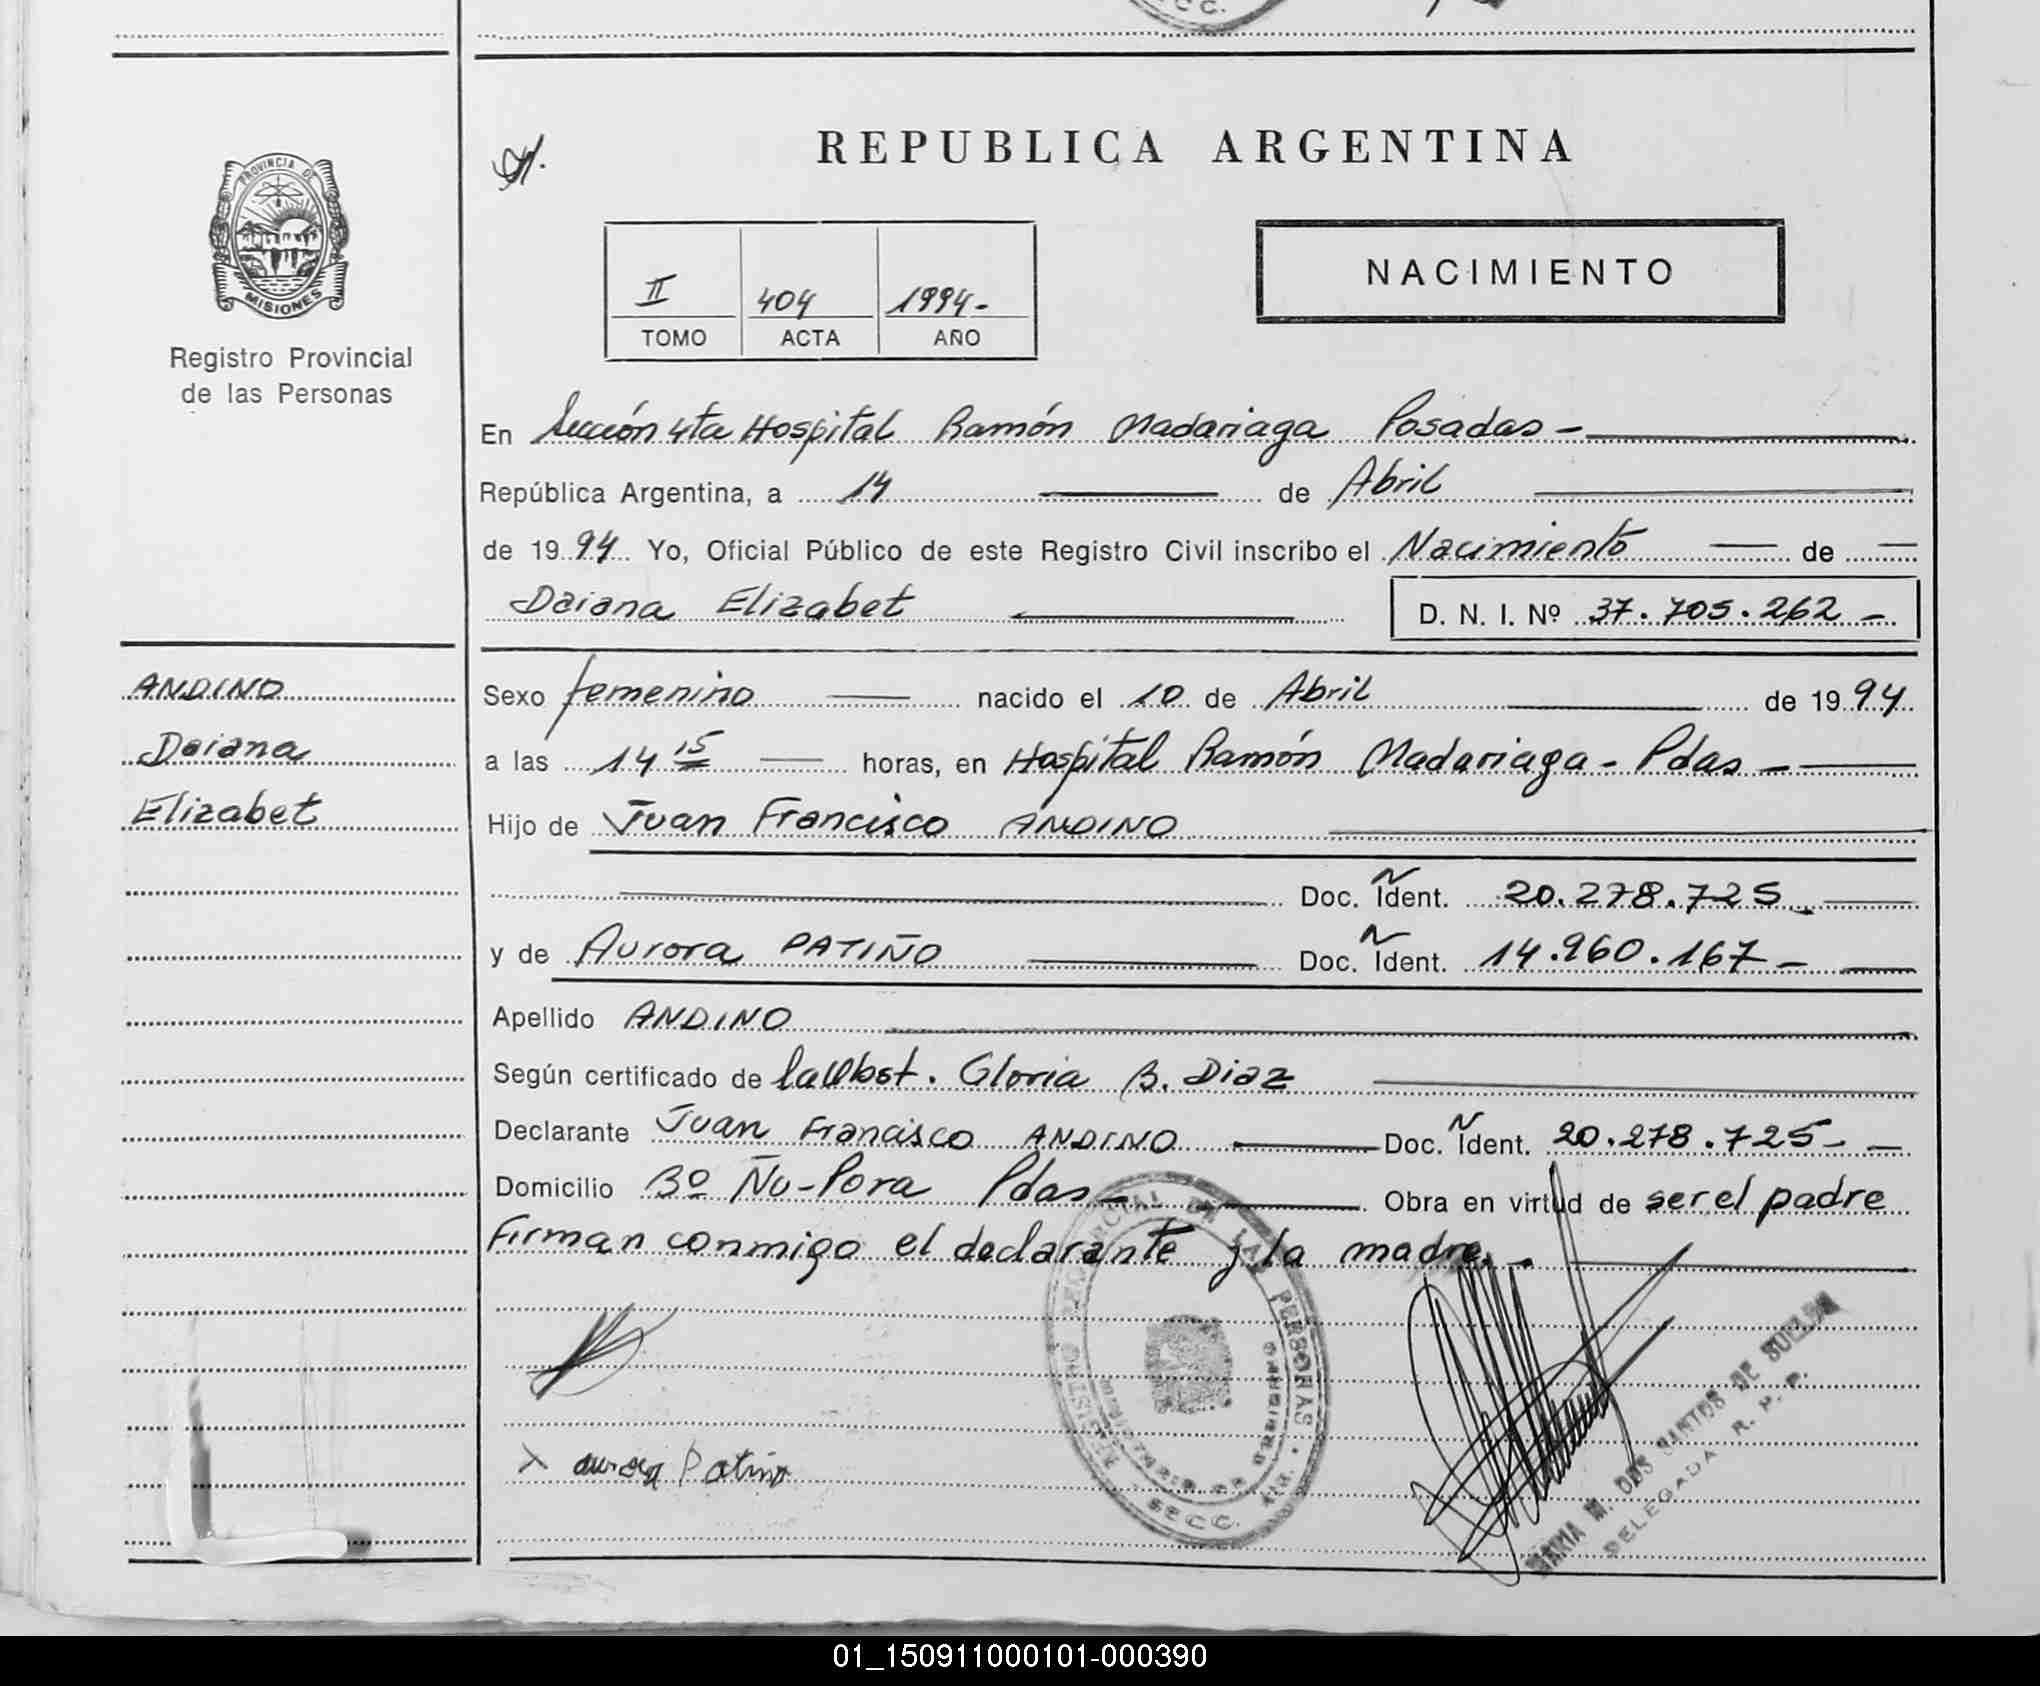 REPUBLICA ARGENTINA
PROVINCIA DE
MISIONES
Registro Provincial
de las Personas
II 404 1994-
TOMO ACTA AÑO
NACIMIENTO
En Sección 4ta Hospital Ramón Madariaga Posadas -
República Argentina, a 14 de Abril
de 1994 Yo, Oficial Público de este Registro Civil inscribo el Nacimiento de
Daiana Elizabet D. N. I. Nº 37.705.262 -
ANDINO
Daiana
Elizabet
Sexo femenino nacido el 10 de Abril de 1994
a las 14 15 horas, en Hospital Ramón Madariaga - Pdas -
Hijo de Juan Francisco ANDINO
Doc. Ident. 20.278.725
y de Aurora PATIÑO Doc. Ident. 14.960.167 -
Apellido ANDINO
Según certificado de Gloria B. Diaz
Declarante Juan Francisco ANDINO Doc. Ident. 20.278.725 -
Domicilio Bº Ñu-Pora Pdas - Obra en virtud de ser el padre
Firman conmigo el declarante y la madre. -
X aurora Patiño
DE LAS PERSONAS
SECC.
M. DOS SANTOS DE
DELEGADA R. P. P.
01_150911000101-000390